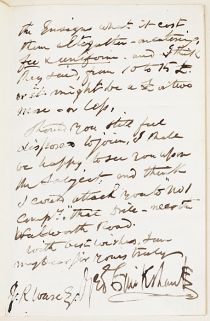 the Ensigns what it cost
them altogether – entering,
fee & uniform – and I think
they said, from 10 to 15 £.
or it might be a £ or two
more – or less,
Should you still feel
disposed to join, I shall
be happy to see you upon
the subject, and think
I could attach you to "No 1
Compy." that side – near the
Walworth Road.
With best wishes, I am
my dear Sir yours truly
Geo Cruikshank
J. R. Ware Esq